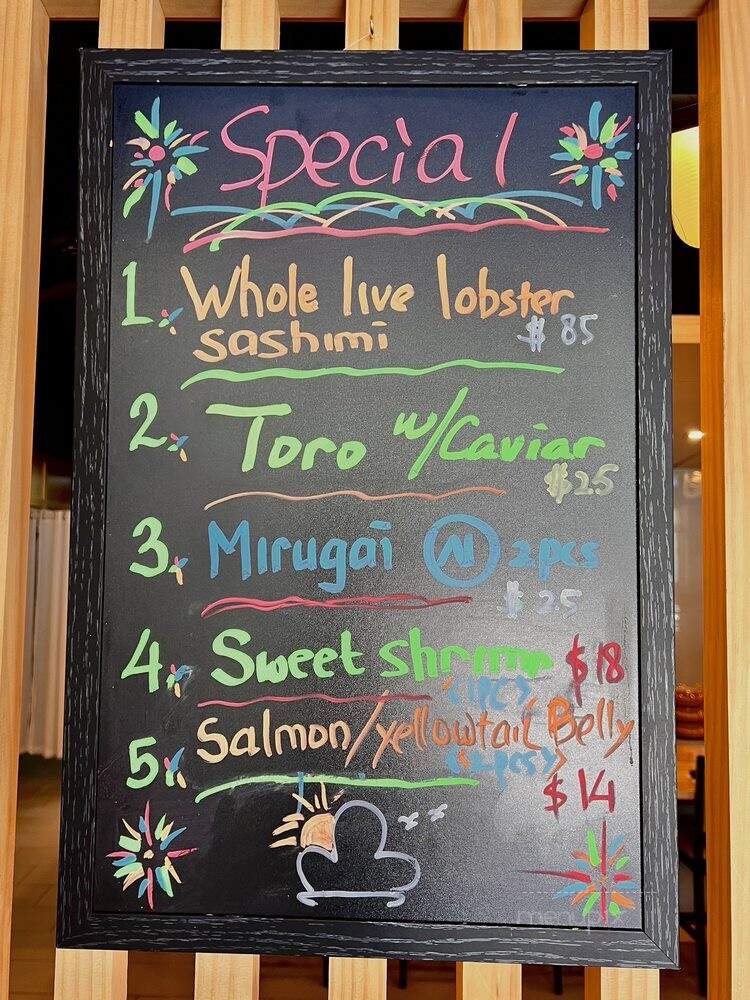 Special
1. Whole live lobster
sashimi $85
2. Toro w/Caviar
$25
3. Mirugai (N) 2pcs
$25
4. Sweet shrimp $18
(1PC)
5. Salmon/yellowtail Belly
(2pcs)
$14